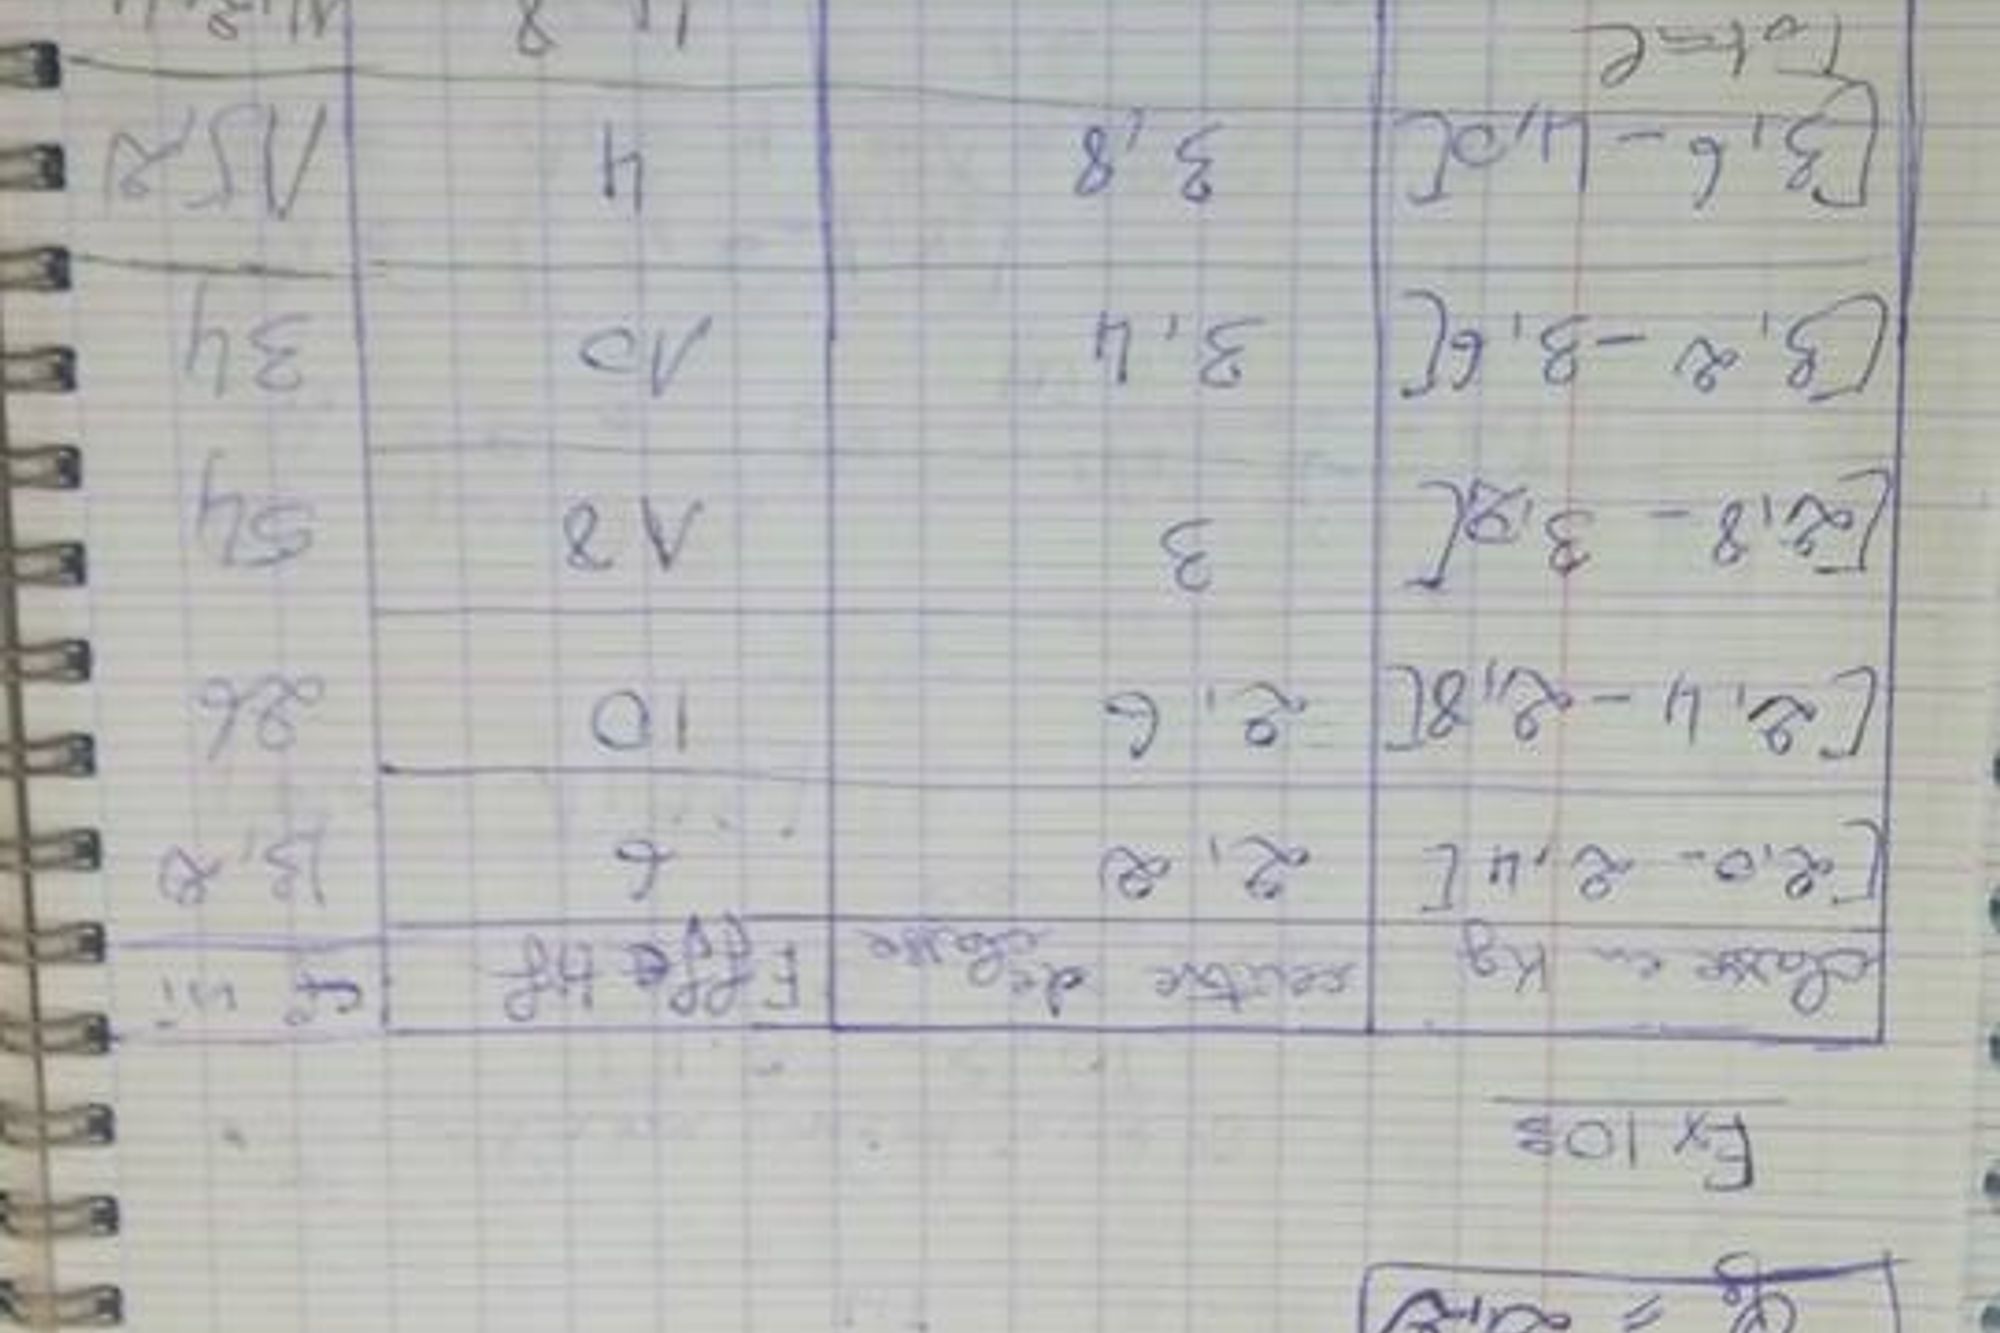 Ex 103
classe en Kg centre de classe Effectif
[2,0 - 2,4[ 2,2 6 13,2
[2,4 - 2,8[ 2,6 10 26
[2,8 - 3,2[ 3 18 54
[3,2 - 3,6[ 3,4 10 34
[3,6 - 4,0[ 3,8 4 15,2
Total 48